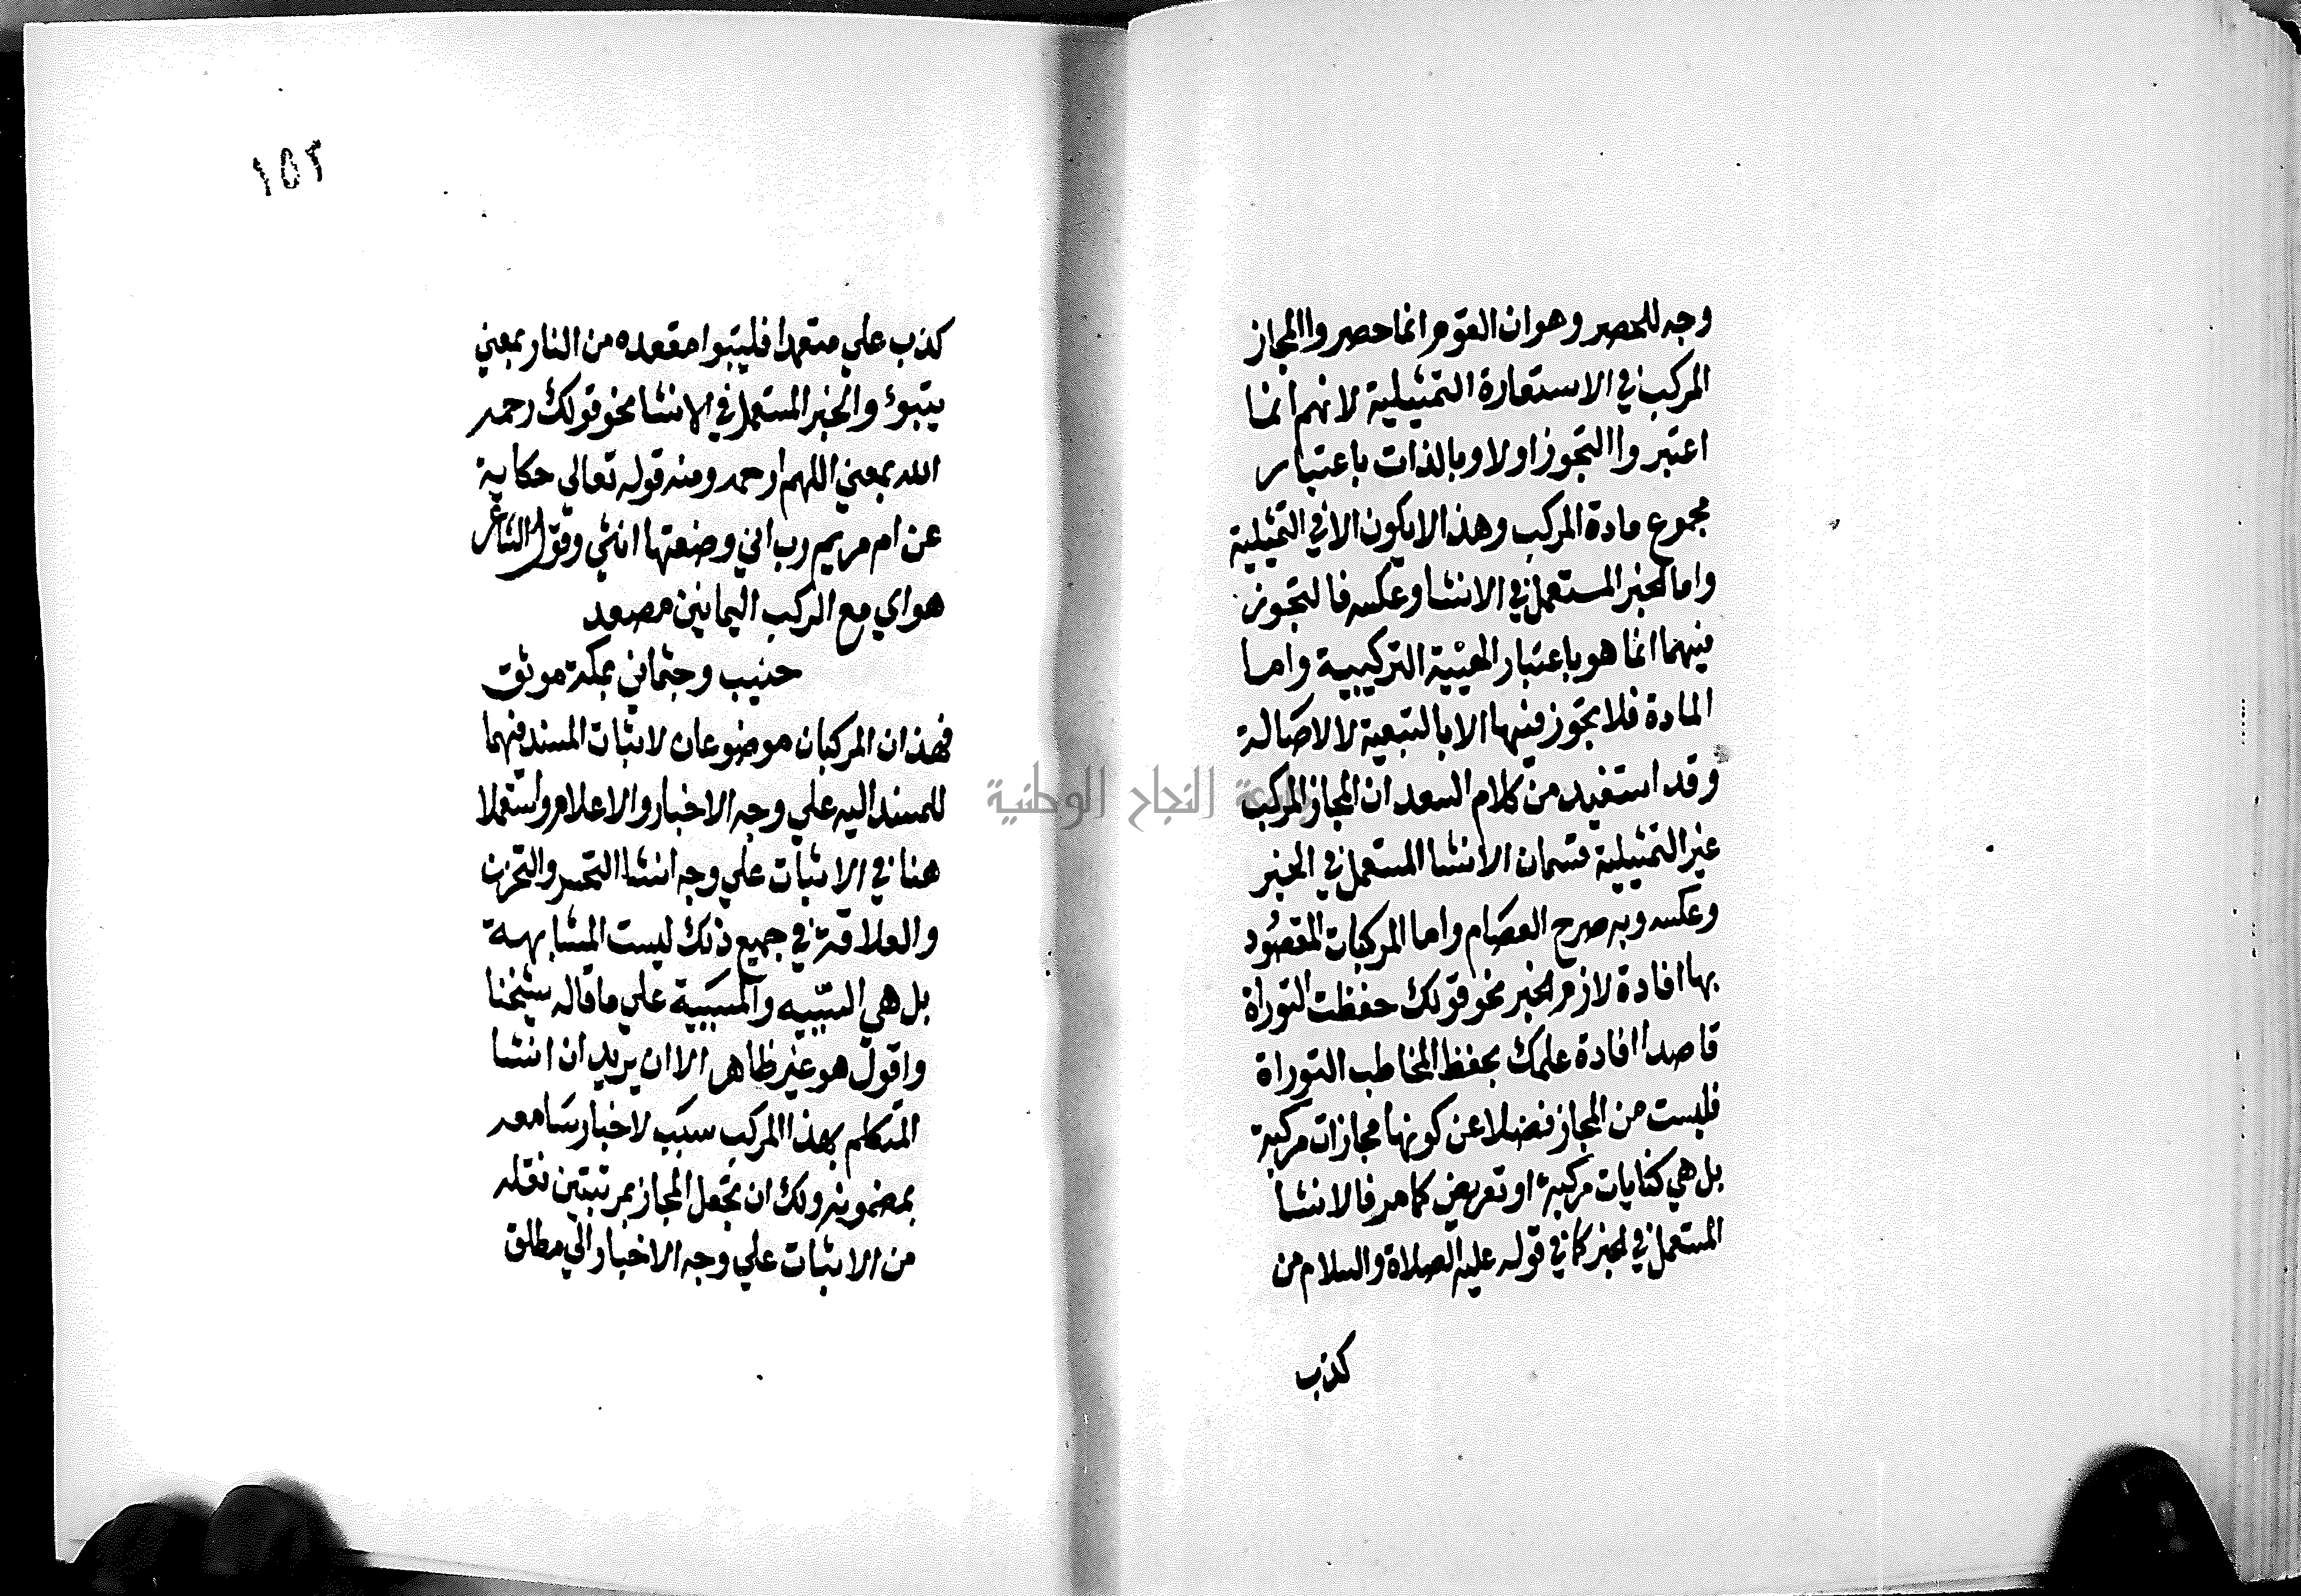 وجه للحصر وهو ان القوم انما حصروا المجاز
المركب في الاستعارة التمثيلية لانهم انما
اعتبروا التجوز اولا وبالذات باعتبار
مجموع مادة المركب وهذا لا يكون الا في التمثيلية
واما الخبر المستعمل في الانشا وعكسه فالتجوز
فيهما انما هو باعتبار الهيئة التركيبية واما
المادة فلا تجوز فيها الا بالتبعية لا لاصالة
وقد استفيد من كلام السعد ان المجاز المركب
غير التمثيلية قسمان الانشا المستعمل في الخبر
وعكسه وبه صرح العصام واما المركبات المقصود
بها افادة لازم الخبر نحو قولك حفظت التوراة
قاصدا افادة علمك بحفظ المخاطب التوراة
فليست من المجاز فضلا عن كونها مجازات مركبة
بل هي كنايات مركبة او تعريض كما مر فالانشا
المستعمل في الخبر كما في قوله عليه الصلاة والسلام من
كذب
١٥٢
كذب علي متعمدا فليتبوا مقعده من النار بمعني
يتبوئ والخبر المستعمل في الانشا نحو قولك رحمه
الله بمعني اللهم ارحمه ومنه قوله تعالي حكاية
عن ام مريم رب اني وضعتها انثي وقول الشاعر
هواي مع الركب اليمانين مصعد
جنيب وجثماني بمكة موثق
فهذان المركبان موضوعان لاثبات المسند فيهما
للمسند اليه علي وجه الاخبار والاعلام واستعملا
هنا في الاثبات علي وجه انشا التحسر والتحزن
والعلاقة في جميع ذلك ليست المشابهة
بل هي السببيه والمسببية علي ما قاله شيخنا
واقول هو غير ظاهر الا ان يريد ان انشا
المتكلم بهذا المركب سبب لاخبار سامعه
بمضمونه ولك ان تجعل المجاز بمرتبتين نقله
من الاثبات علي وجه الاخبار الي مطلق
جامعة النجاح الوطنية